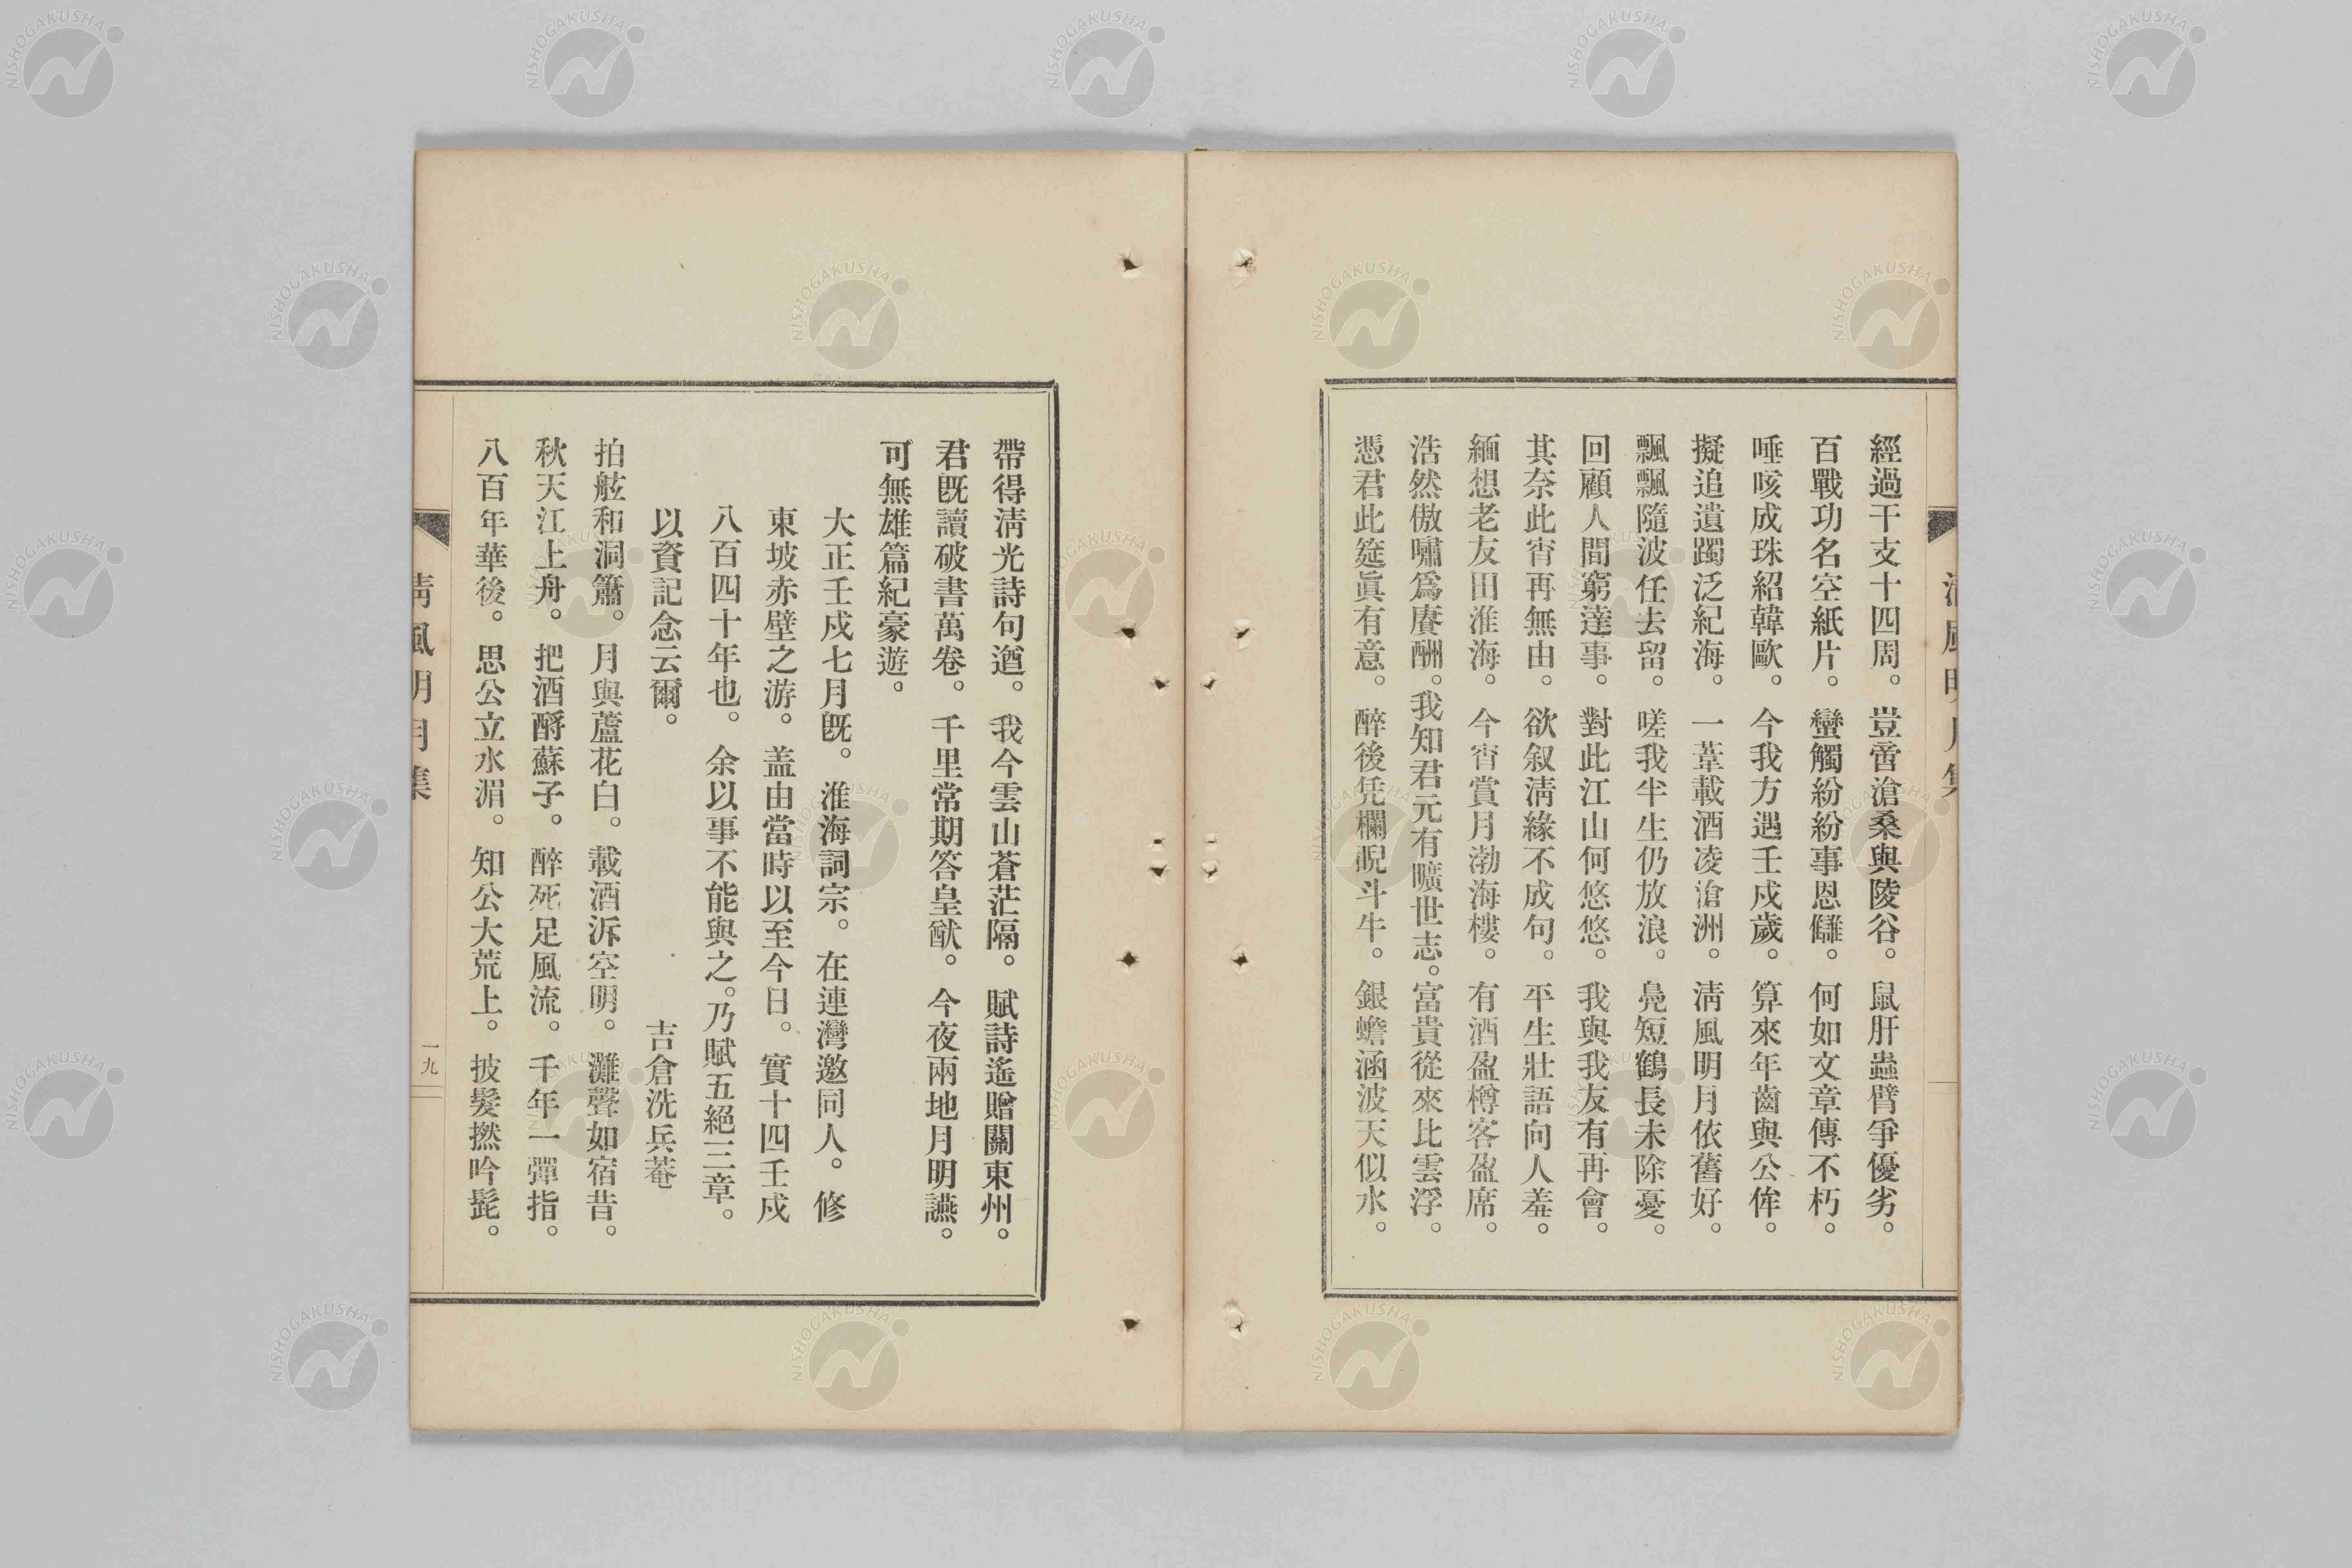 經過干支十四周。豈啻滄桑與陵谷。鼠肝蟲臂爭優劣。
百戰功名空紙片。蠻觸紛紛事恩讎。何如文章傳不朽。
唾咳成珠紹韓歐。今我方遇壬戌歲。算來年齒與公侔。
擬追遺躅泛紀海。一葦載酒凌滄洲。淸風明月依舊好。
飄飄隨波任去留。嗟我半生仍放浪。鳧短鶴長未除憂。
回顧人間窮達事。對此江山何悠悠。我與我友有再會。
其奈此宵再無由。欲叙淸緣不成句。平生壯語向人羞。
緬想老友田淮海。今宵賞月渤海樓。有酒盈樽客盈席。
浩然傲嘯爲賡酬。我知君元有曠世志。富貴從來比雲浮。
憑君此筵眞有意。醉後凭欄睨斗牛。銀蟾涵波天似水。
淸風明月集
帶得淸光詩句遒。我今雲山蒼茫隔。賦詩遙贈關東州。
君旣讀破書萬卷。千里常期答皇猷。今夜兩地月明讌。
可無雄篇紀豪遊。
大正壬戌七月旣。淮海詞宗。在連灣邀同人。修
東坡赤壁之游。盖由當時以至今日。實十四壬戌
八百四十年也。余以事不能與之。乃賦五絕三章。
以資記念云爾。
吉倉洗兵菴
拍舷和洞簫。月與蘆花白。載酒泝空明。灘聲如宿昔。
秋天江上舟。把酒酹蘇子。醉死足風流。千年一彈指。
八百年華後。思公立水湄。知公大荒上。披髮撚吟髭。
淸風明月集
一九
NISHOGAKUSHA